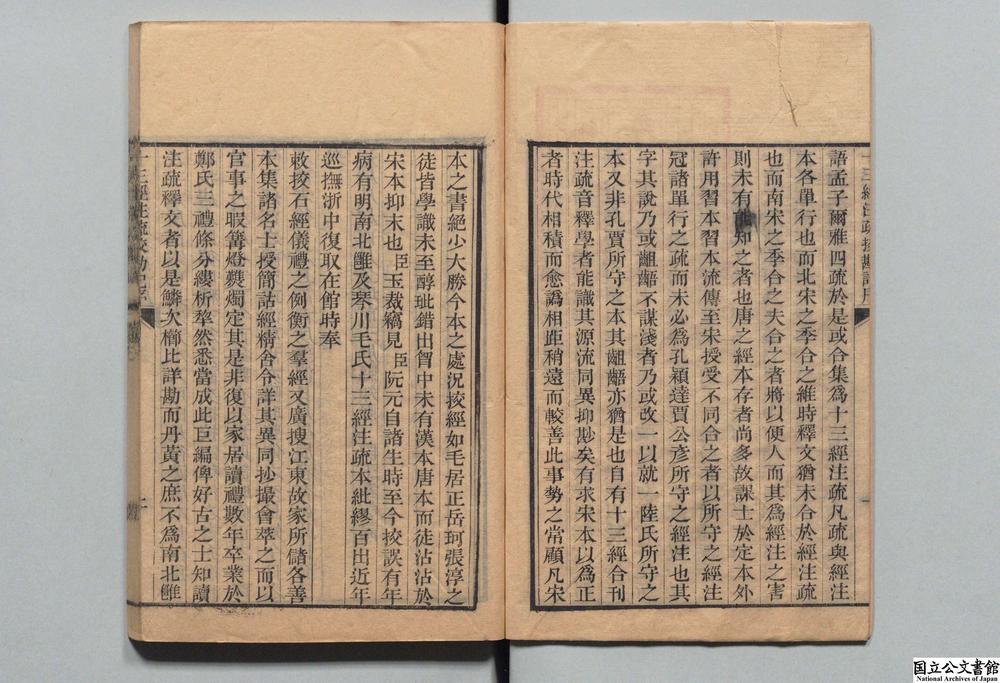 十三經注疏挍勘記序
語孟子爾雅四疏於是或合集爲十三經注疏凡疏與經注
本各單行也而北宋之季合之維時釋文猶未合於經注疏
也而南宋之季合之夫合之者將以便人而其爲經注之害
則未有能知之者也唐之經本存者尚多故課士於定本外
許用習本習本流傳至宋授受不同合之者以所守之經注
冠諸單行之疏而未必爲孔穎達賈公彥所守之經注也其
字其說乃或齟齬不謀淺者乃或改一以就一陸氏所守之
本又非孔賈所守之本其齟齬亦猶是也自有十三經合刊
注疏音釋學者能識其源流同異抑尠矣有求宋本以爲正
者時代相積而愈譌相距稍遠而較善此事勢之當顧凡宋
本之書絕少大勝今本之處況挍經如毛居正岳珂張淳之
徒皆學識未至醇玼錯出胷中未有漢本唐本而徒沾沾於
宋本抑末也臣玉裁竊見臣阮元自諸生時至今挍誤有年
病有明南北雝及琴川毛氏十三經注疏本紕繆百出近年
巡撫浙中復取在館時奉
敕挍石經儀禮之例衡之羣經又廣搜江東故家所儲各善
本集諸名士授簡詁經精舍令詳其異同抄撮會萃之而以
官事之暇篝燈爇燭定其是非復以家居讀禮數年卒業於
鄭氏三禮條分縷析犂然悉當成此巨編俾好古之士知讀
注疏釋文者以是鱗次櫛比詳勘而丹黃之庶不爲南北雝
国立公文書館
National Archives of Japan